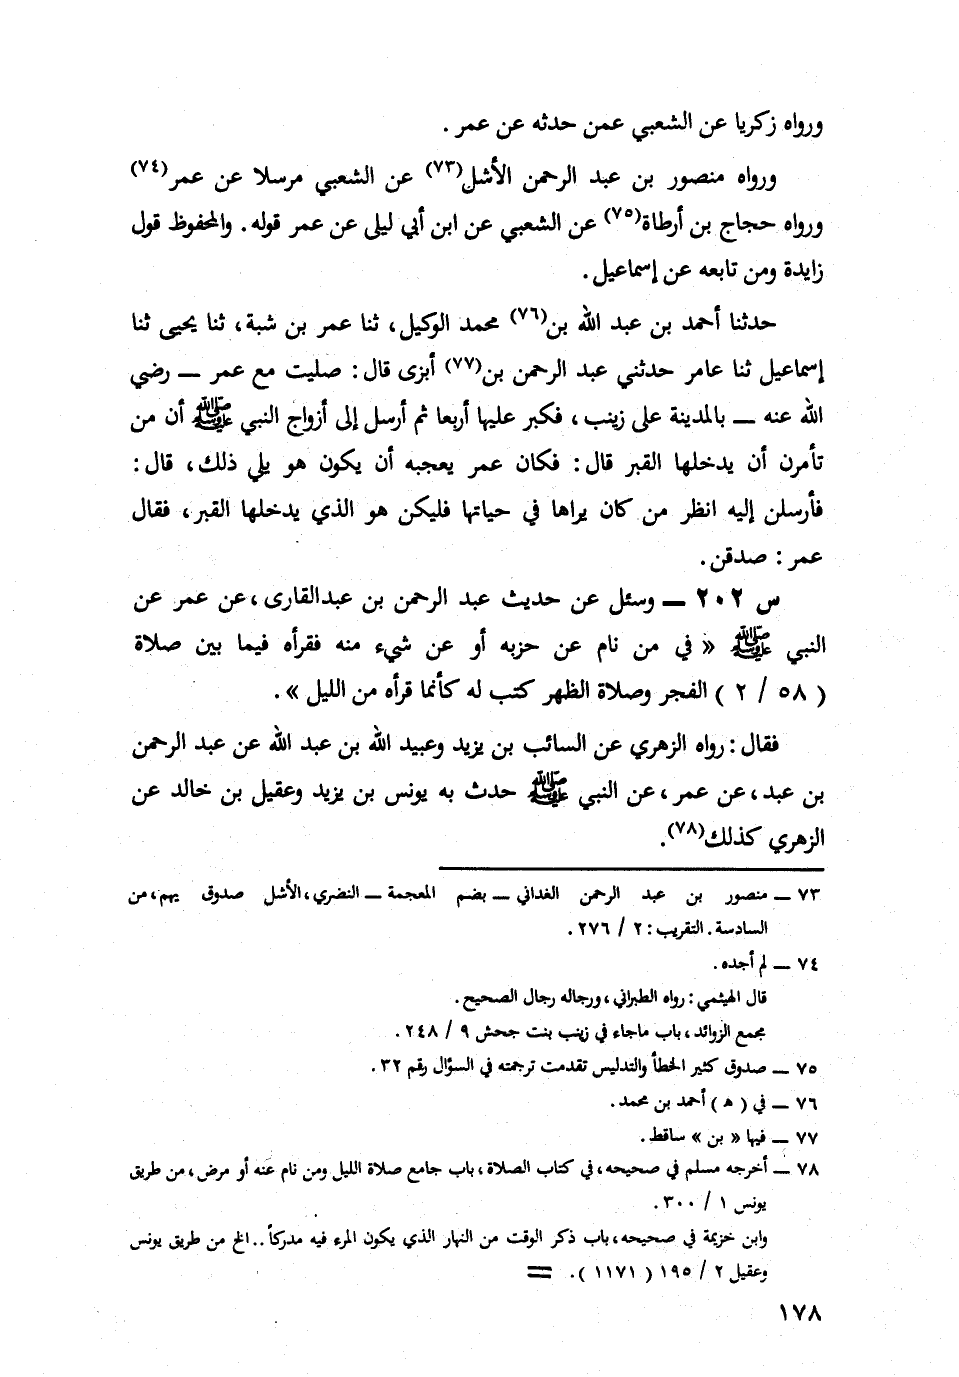 ورواه زكريا عن الشعبي عمن حدثه عن عمر .
ورواه منصور بن عبد الرحمن الأشل(٧٣) عن الشعبي مرسلا عن عمر(٧٤)
ورواه حجاج بن أرطاة(٧٥) عن الشعبي عن ابن أبي ليلى عن عمر قوله . والمحفوظ قول
زايدة ومن تابعه عن إسماعيل .
حدثنا أحمد بن عبد الله بن(٧٦) محمد الوكيل ، ثنا عمر بن شبة ، ثنا يحيى ثنا
إسماعيل ثنا عامر حدثني عبد الرحمن بن(٧٧) أبزى قال : صليت مع عمر ــ رضي
الله عنه ــ بالمدينة على زينب ، فكبر عليها أربعا ثم أرسل إلى أزواج النبي ﷺ أن من
تأمرن أن يدخلها القبر قال : فكان عمر يعجبه أن يكون هو يلي ذلك ، قال :
فأرسلن إليه انظر من كان يراها في حياتها فليكن هو الذي يدخلها القبر ، فقال
عمر : صدقن .
س ٢٠٢ ــ وسئل عن حديث عبد الرحمن بن عبدالقارى ، عن عمر عن
النبي ﷺ « في من نام عن حزبه أو عن شيء منه فقرأه فيما بين صلاة
( ٥٨ / ٢ ) الفجر وصلاة الظهر كتب له كأنما قرأه من الليل » .
فقال : رواه الزهري عن السائب بن يزيد وعبيد الله بن عبد الله عن عبد الرحمن
بن عبد ، عن عمر ، عن النبي ﷺ حدث به يونس بن يزيد وعقيل بن خالد عن
الزهري كذلك(٧٨).
٧٣ ــ منصور بن عبد الرحمن الغداني ــ بضم المعجمة ــ النضري ، الأشل صدوق يهم ، من
السادسة . التقريب : ٢ / ٢٧٦ .
٧٤ ــ لم أجده .
قال الهيثمي : رواه الطبراني ، ورجاله رجال الصحيح .
مجمع الزوائد ، باب ماجاء في زينب بنت جحش ٩ / ٢٤٨ .
٧٥ ــ صدوق كثير الخطأ والتدليس تقدمت ترجمته في السؤال رقم ٣٢ .
٧٦ ــ في ( هـ ) أحمد بن محمد .
٧٧ ــ فيها « بن » ساقط .
٧٨ ــ أخرجه مسلم في صحيحه ، في كتاب الصلاة ، باب جامع صلاة الليل ومن نام عنه أو مرض ، من طريق
يونس ١ / ٣٠٠ .
وابن خزيمة في صحيحه ، باب ذكر الوقت من النهار الذي يكون المرء فيه مدركاً .. الخ من طريق يونس
وعقيل ٢ / ١٩٥ ( ١١٧١ ) . =
١٧٨